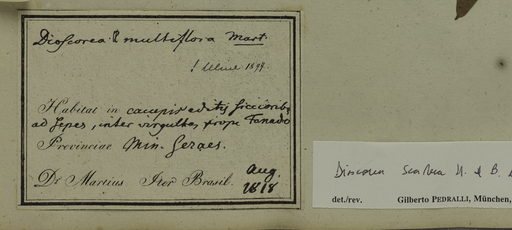 Dioscorea multiflora Mart.
! Uline 1899.
Habitat in campis editis siccioribs,
ad sepes, inter virgulta, prope Fanado
Provinciae Min. Geraes.
Dr Martius Iter Brasil. Aug. 1818
Dioscorea H. & B.
det./rev. Gilberto PEDRALLI, München,